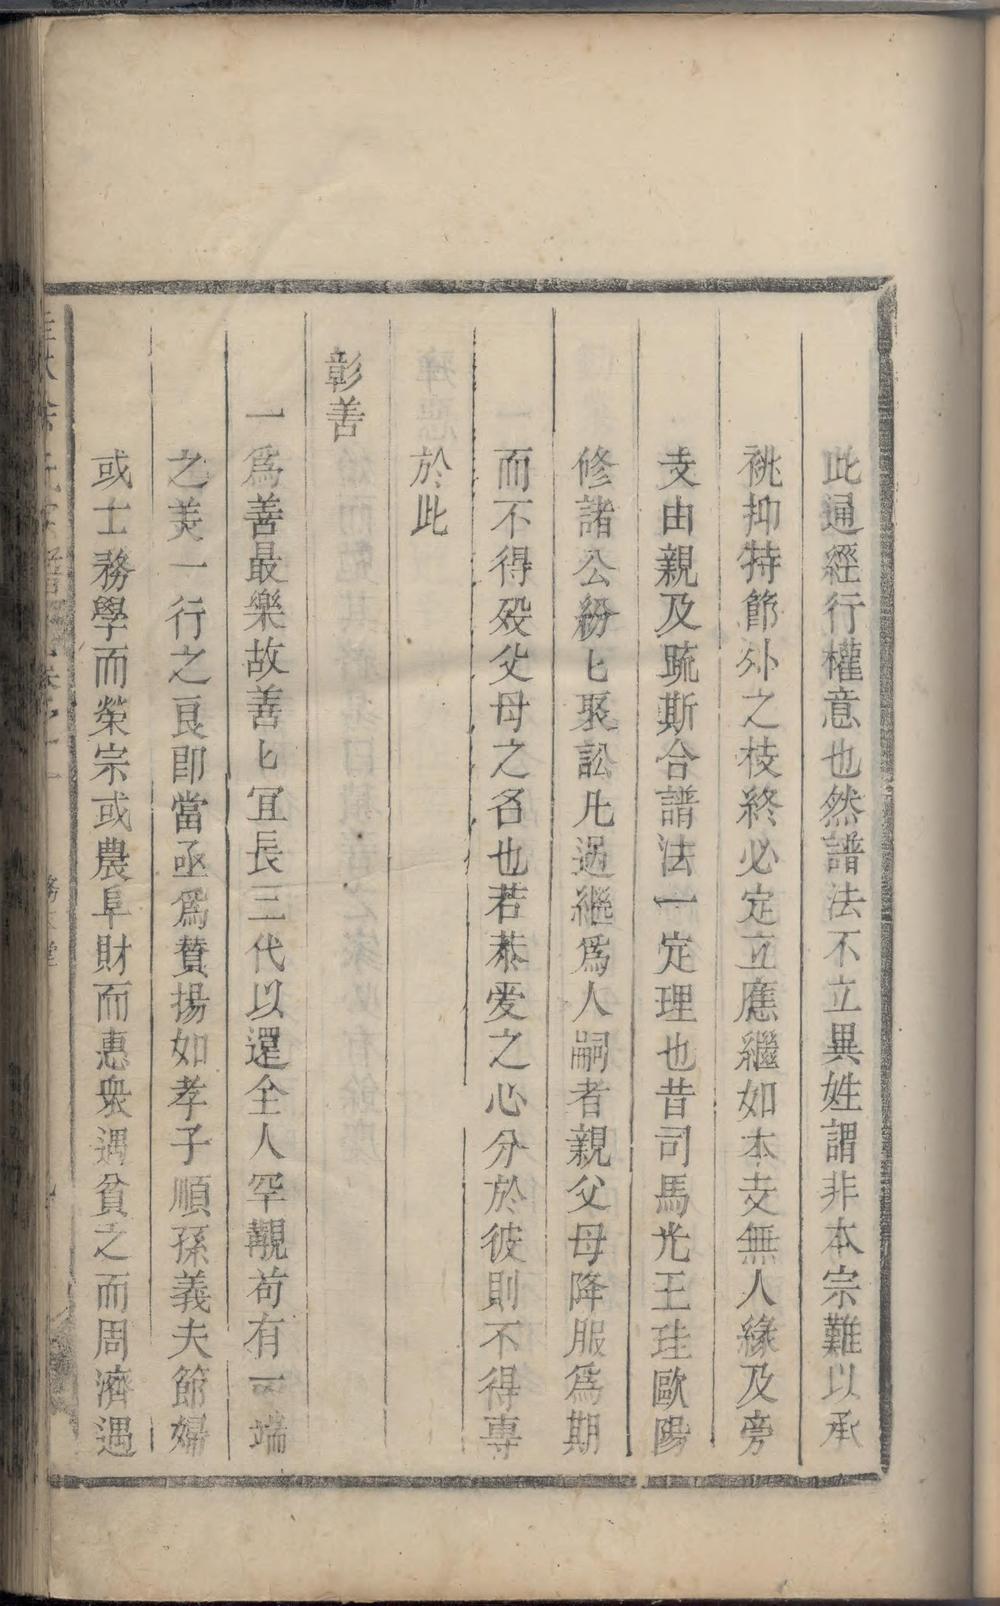 此通經行權意也然譜法不立異姓謂非本宗難以承
祧抑特節外之枝終必定立應繼如本支無人緣及旁
支由親及疏斯合譜法一定理也昔司馬光王珪歐陽
修諸公紛匕聚訟凡過繼爲人嗣者親父母降服爲期
而不得殁父母之名也若恭愛之心分於彼則不得專
於此
彰善
一爲善最樂故善匕宜長三代以還全人罕覯苟有一端
之美一行之良即當亟爲賛揚如孝子順孫義夫節婦
或士務學而榮宗或農阜財而惠衆遇貧乏而周濟遇